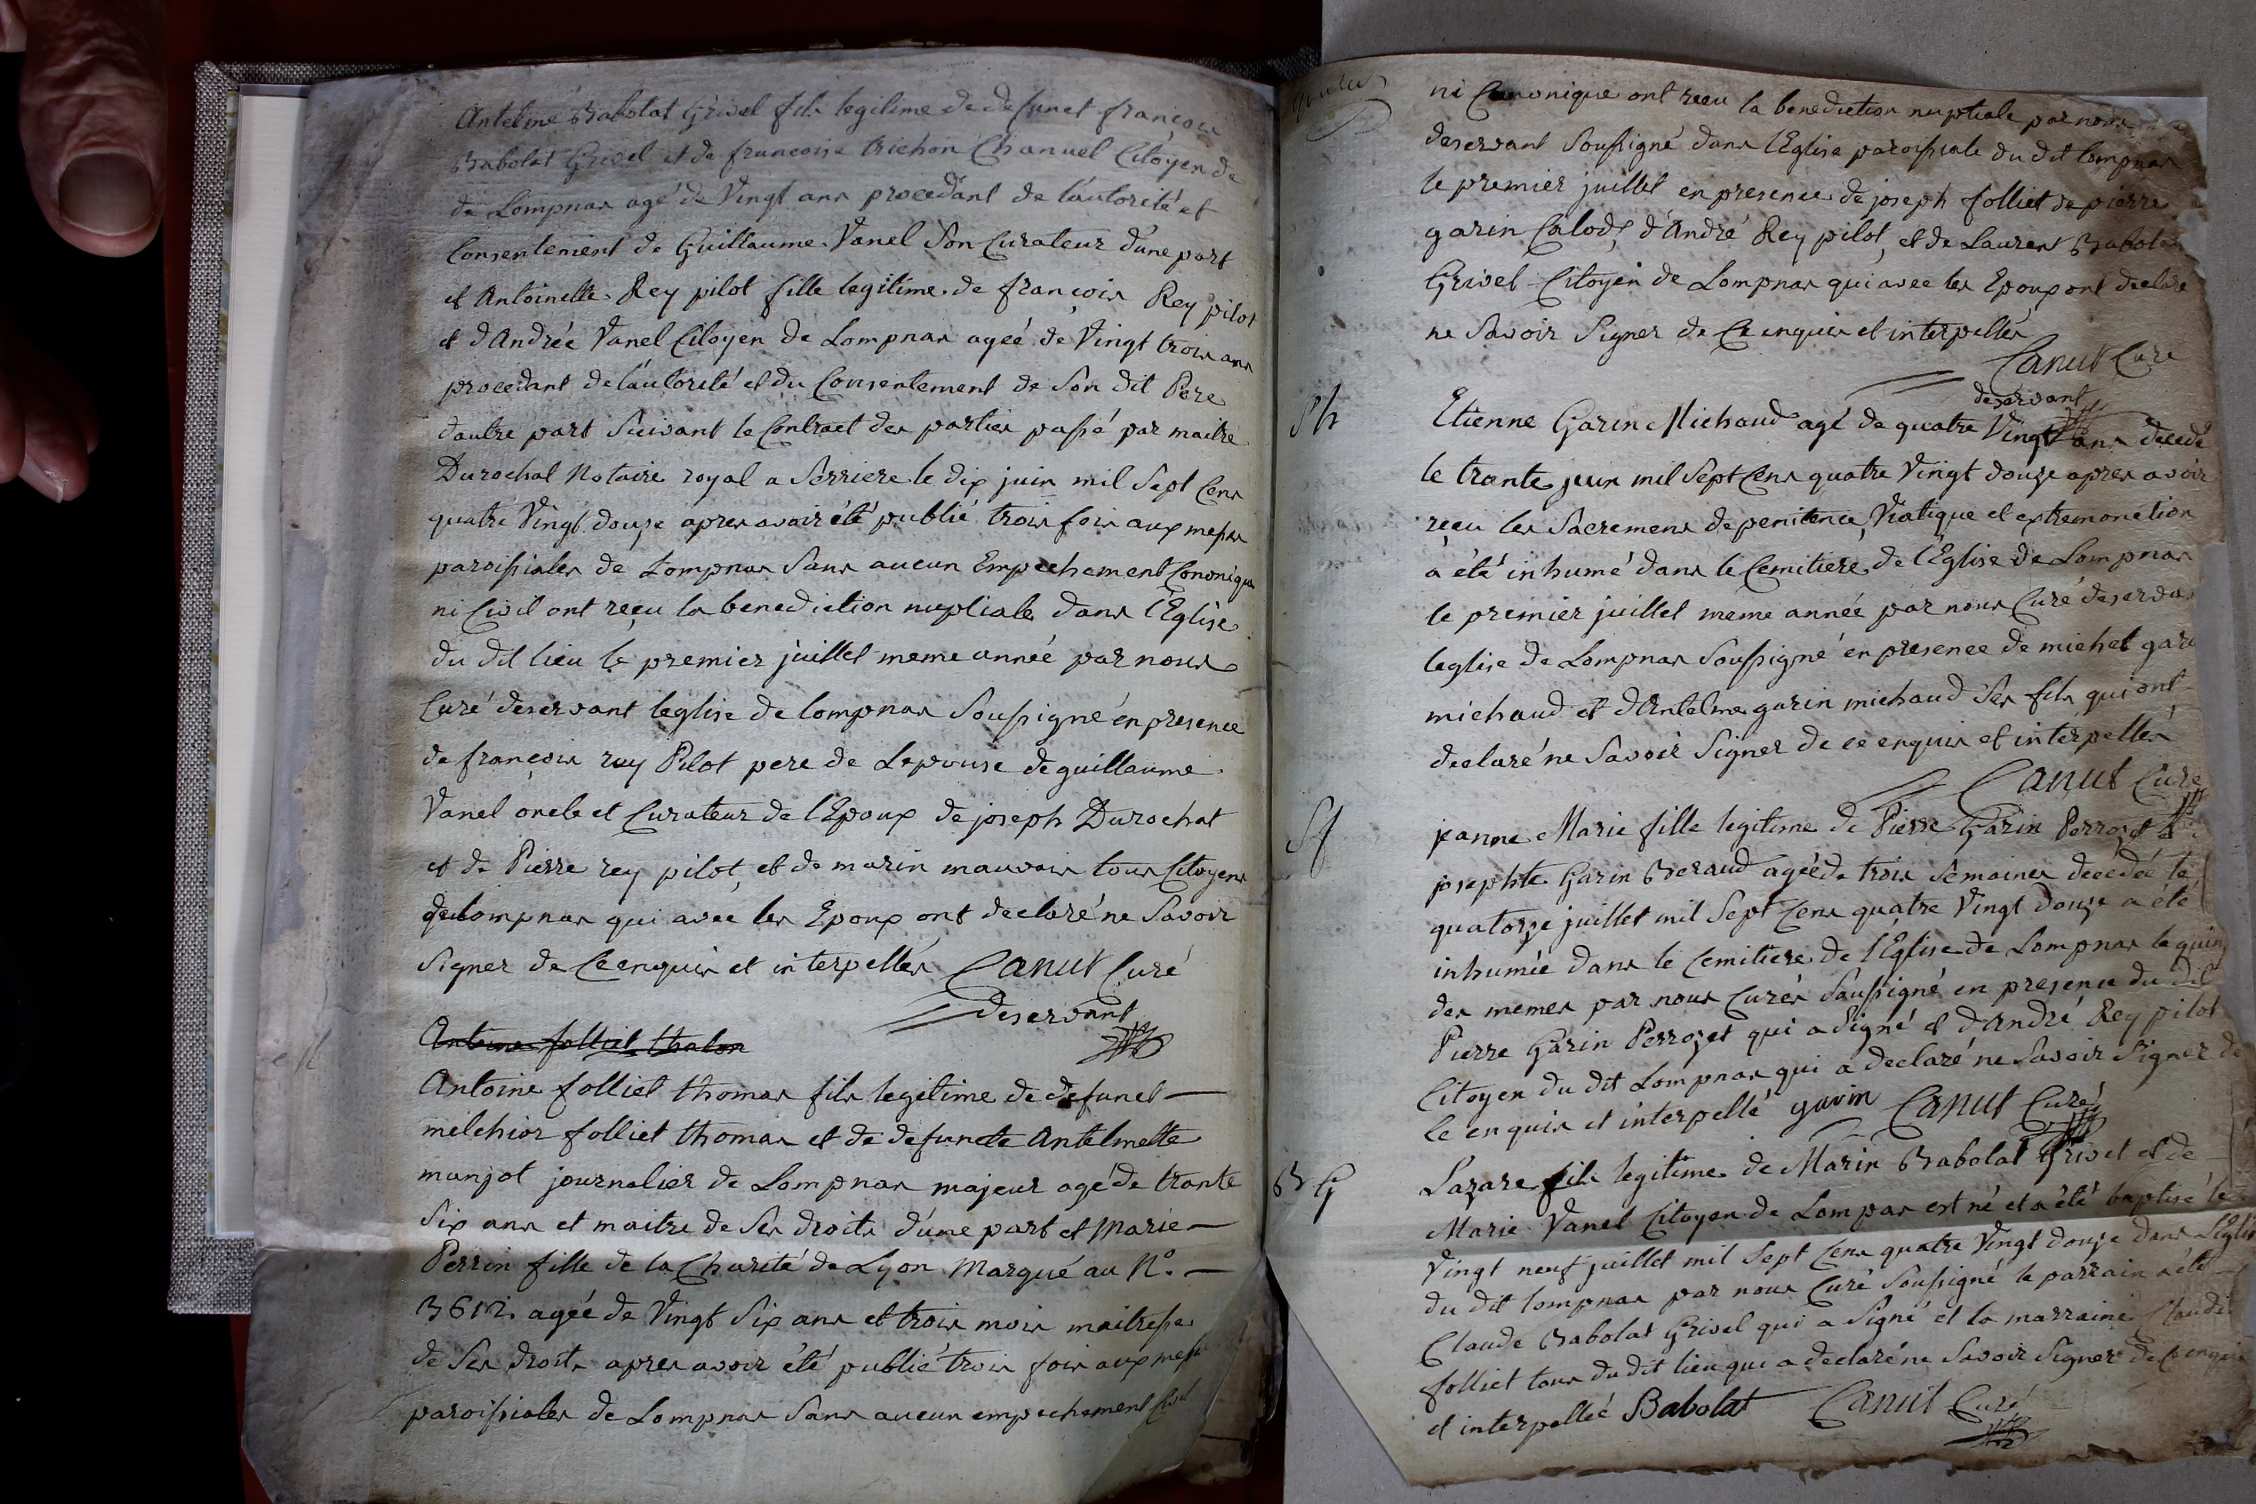 Antelme Babolat Grivel fils legitime de defunct françois
Babolat Grivel et de francoise trichon Chanuel Citoyen de
de Lompnas agé de Vingt ans procedant de l'autorité et
Consentement de Guillaume Vanel Son Curateur d'une part
et Antoinette Rey pilot fille legitime de françois Rey pilot
et d'Andrée Vanel Citoyen de Lompnas ageé de Vingt trois ans
procedant de l'autorité et du Consentement de Son dit Pere
d'autre part Suivant le Contract des parties passé par maitre
Durochat Notaire royal a Serriere le dix juin mil Sept Cens
quatre Vingt douze apres avoir été publié trois fois aux messes
paroissiales de Lompnas Sans aucun Empechement Cononique
ni Civil ont reçu la benediction nuptiale dans l'Eglise
du dit lieu le premier juillet meme année par nous
Curé deservant leglise de lompnas Soussigné en presence
de françois rey Pilot pere de Lepouse de guillaume
Vanel oncle et Curateur de l'Epoux de joseph Durochat
et de Pierre rey pilot et de marin mauvais tous Citoyens
de lompnas qui avec les Epoux ont declaré ne Savoir
Signer de Ce enquis et interpellés Canut Curé
deservant
Antoine folliet
Antoine folliet thomas fils legitime de defunct
melchior folliet thomas et de defuncte Antelmette
manjot journalier de Lompnas majeur agé de trante
Six ans et maitre de Ses droits d'une part et Marie
Perrin fille de la Charité de Lyon Marqué au N°.
ageé de Vingt Six ans et trois mois maitresse
de Ses droits apres avoir été publié trois fois aux messes
paroissiales de Lompnas Sans aucun empechement Civil
ni Canonique ont reçu la benediction nuptiale par nous
deservant Soussigné dans l'Eglise paroissiale du dit lompnas
le premier juillet en presence de joseph folliet de pierre
garin Calod, d'André Rey pilot, et de Laurent Babolat
Grivel Citoyen de Lompnas qui avec les Epoux ont declaré
ne Savoir Signer de Ce enquis et interpellés
Canut Curé
deservant
Sh
Etienne Garin Michaud agé de quatre Vingt ans decedé
le trante juin mil Sept Cens quatre Vingt douze apres avoir
reçu les Sacremens de penitence, Viatique et extremonction
a été inhumé dans le Cemitiere de l'Eglise de Lompnas
le premier juillet meme année par nous Curé deservant
leglise de Lompnas Soussigné en presence de michel garin
michaud et d'Antelme garin michaud Ses fils qui ont
declaré ne Savoir Signer de ce enquis et interpellés
Canut Curé
Sf
jeanne Marie fille legitime de Pierre Garin Perrozet et
josephte Garin Beraud ageé de trois Semaines decédeé le
quatorze juillet mil Sept Cens quatre Vingt douze a été
inhumée dans le Cemitiere de l'Eglise de Lompnas le quinze
des memes par nous Curés Soussigné en presence du dit
Pierre Garin Perrozet qui a Signé et d'André Rey pilot
Citoyen du dit Lompnas qui a declaré ne Savoir Signer de
Ce enquis et interpellé garin Canut Curé
BG
Lazare fils legitime de Marin Babolat Grivel et de
Marie Vanel Citoyen de Lompas est né et a été baptisé le
Vingt neuf juillet mil Sept Cens quatre Vingt douze dans l'Eglise
du dit lompnas par nous Curé Soussigné le parrain a été
Claude Babolat Grivel qui a Signé et la marraine Claudi
folliet tous du dit lieu qui a declaré ne Savoir Signer de Ce enquis
et interpelleé Babolat Canut Curé